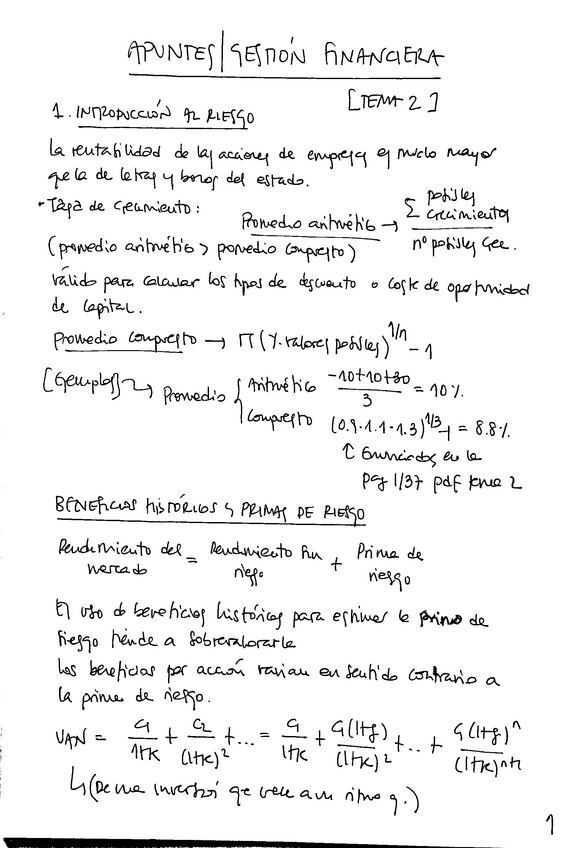 APUNTES/GESTIÓN FINANCIERA
[TEMA 2]
1. INTRODUCCIÓN AL RIESGO
La rentabilidad de las acciones de empresas es mucho mayor
que la de letras y bonos del estado.
- Tasa de crecimiento:
Promedio aritmético → Σ posibles crecimientos / nº posibles crec.
(promedio aritmético > promedio compuesto)
válido para calcular los tipos de descuento o coste de oportunidad
de capital.
Promedio compuesto → Π (%. valores posibles)^1/n - 1
[Ejemplos] → Promedio { Aritmético (-10+10+30)/3 = 10%
Compuesto (0.9·1.1·1.3)^1/3 -1 = 8.8%
↑ Enunciados en la
pag 1/37 pdf tema 2
BENEFICIOS HISTÓRICOS Y PRIMAS DE RIESGO
Rendimiento del mercado = Rendimiento sin riesgo + Prima de riesgo
El uso de beneficios históricos para estimar la prima de
riesgo tiende a sobrevalorarla
Los beneficios por acción varían en sentido contrario a
la prima de riesgo.
VAN = C1/(1+K) + C2/(1+K)^2 + ... = C1/(1+K) + C1(1+g)/(1+K)^2 + .. + C1(1+g)^n/(1+K)^n+1
↳ (De una inversión que crece a un ritmo g.)
1